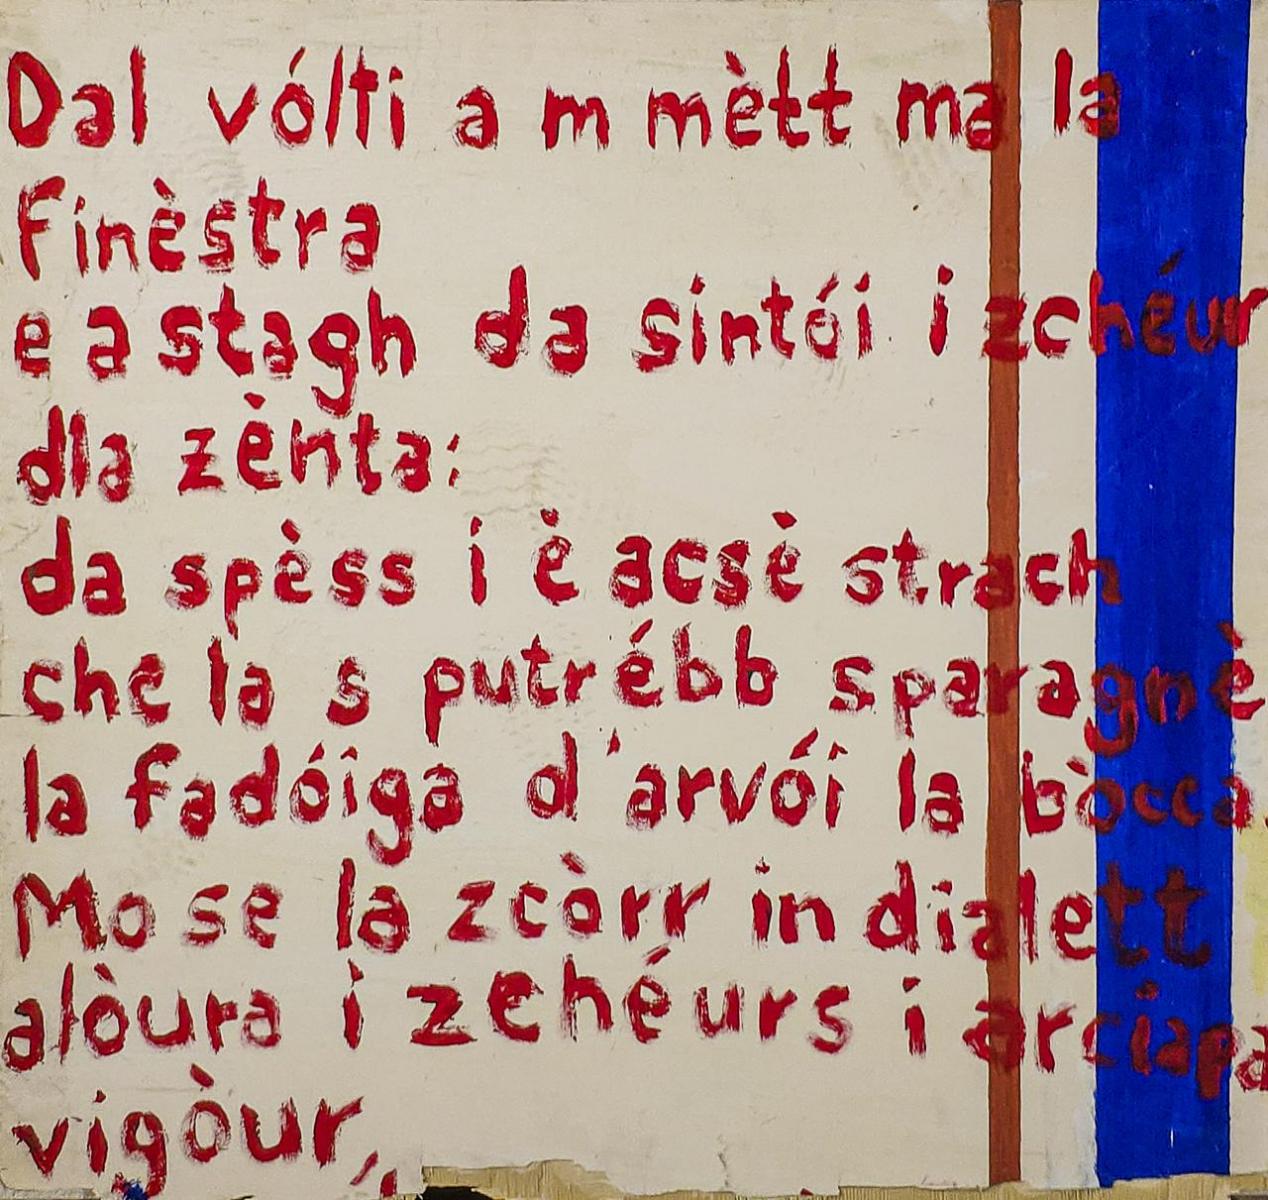 Dal vólti a m mètt ma la
finèstra
e a stagh da sintói i zchéur
dla zènta:
da spèss i è acsè strach
che la s putrébb sparagnè
la fadóiga d'arvói la bòcca.
Mo se la zcòrr in dialett
alòura i zehéurs i arciapa
vigòur,,